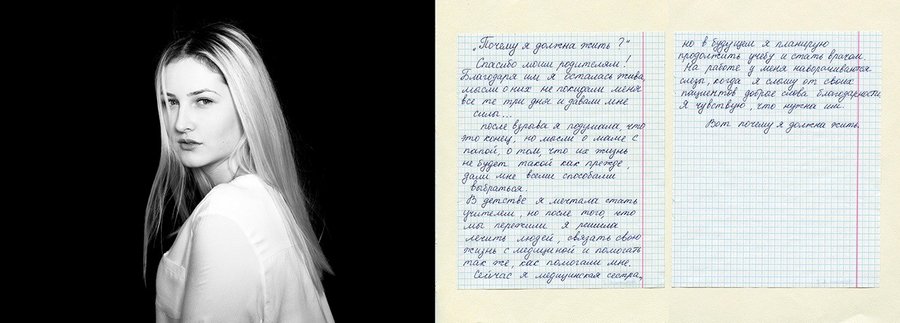 „Почему я должна жить?"
Спасибо моим родителям!
Благодаря им я осталась жива,
мысли о них не покидали меня
все те три дня и давали мне
силы...
после взрыва я подумала, что
это конец, но мысли о маме с
папой, о том, что их жизнь
не будет такой как прежде,
дали мне всеми способами
выбраться.
В детстве я мечтала стать
учителем, но после того что
мы пережили я решила
лечить людей, связать свою
жизнь с медициной и помогать
так же, как помогали мне.
Сейчас я медицинская сестра,
но в будущем я планирую
продолжить учебу и стать врачом.
На работе у меня наворачиваются
слезы, когда я слышу от своих
пациентов добрые слова благодарности,
я чувствую, что нужна им.
Вот почему я должна жить.